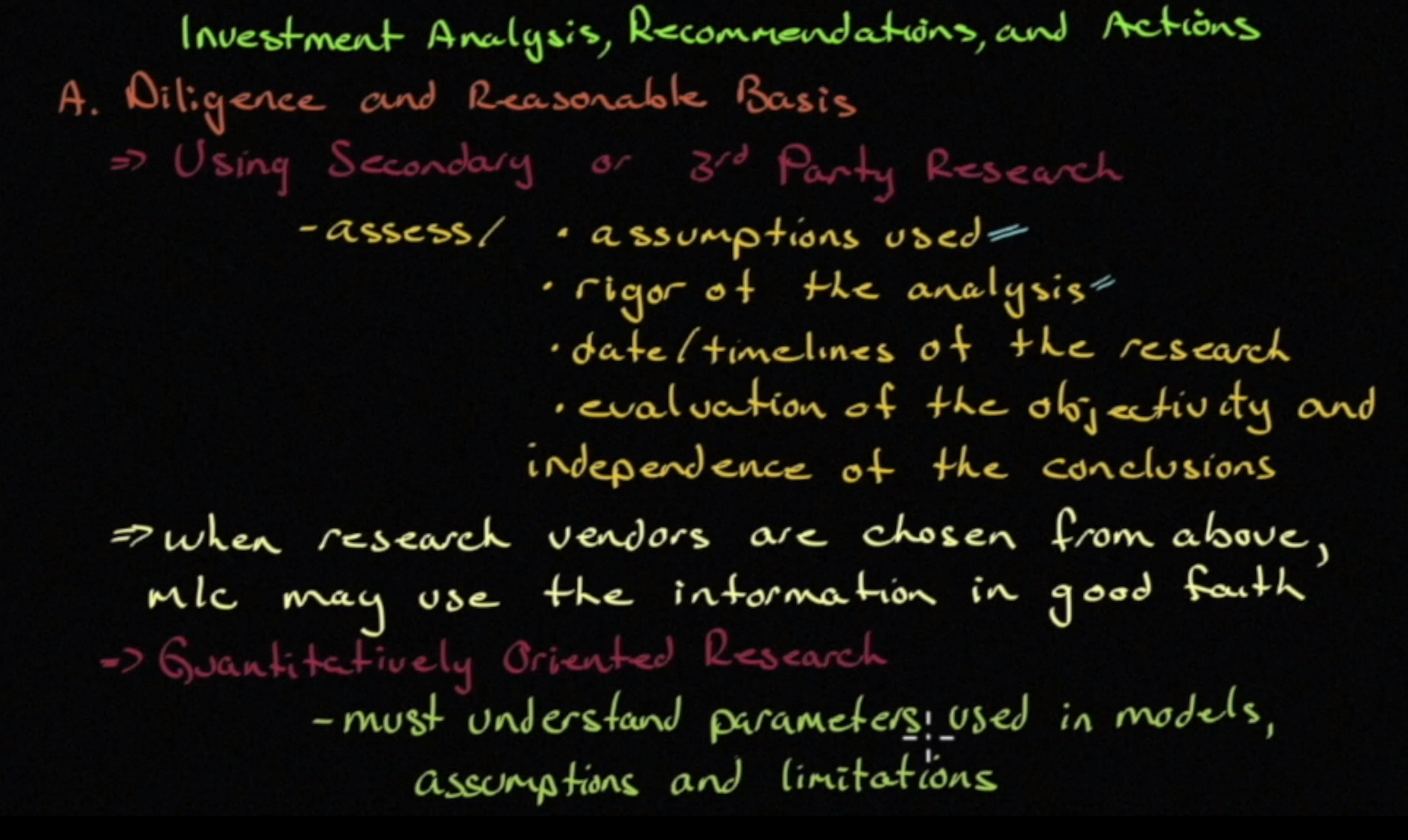 Investment Analysis, Recommendations, and Actions
A. Diligence and Reasonable Basis
⇒ Using Secondary or 3rd Party Research
- assess/ · assumptions used
· rigor of the analysis
· date/timelines of the research
· evaluation of the objectivity and
independence of the conclusions
⇒ when research vendors are chosen from above,
M/c may use the information in good faith
⇒ Quantitatively Oriented Research
- must understand parameters used in models,
assumptions and limitations